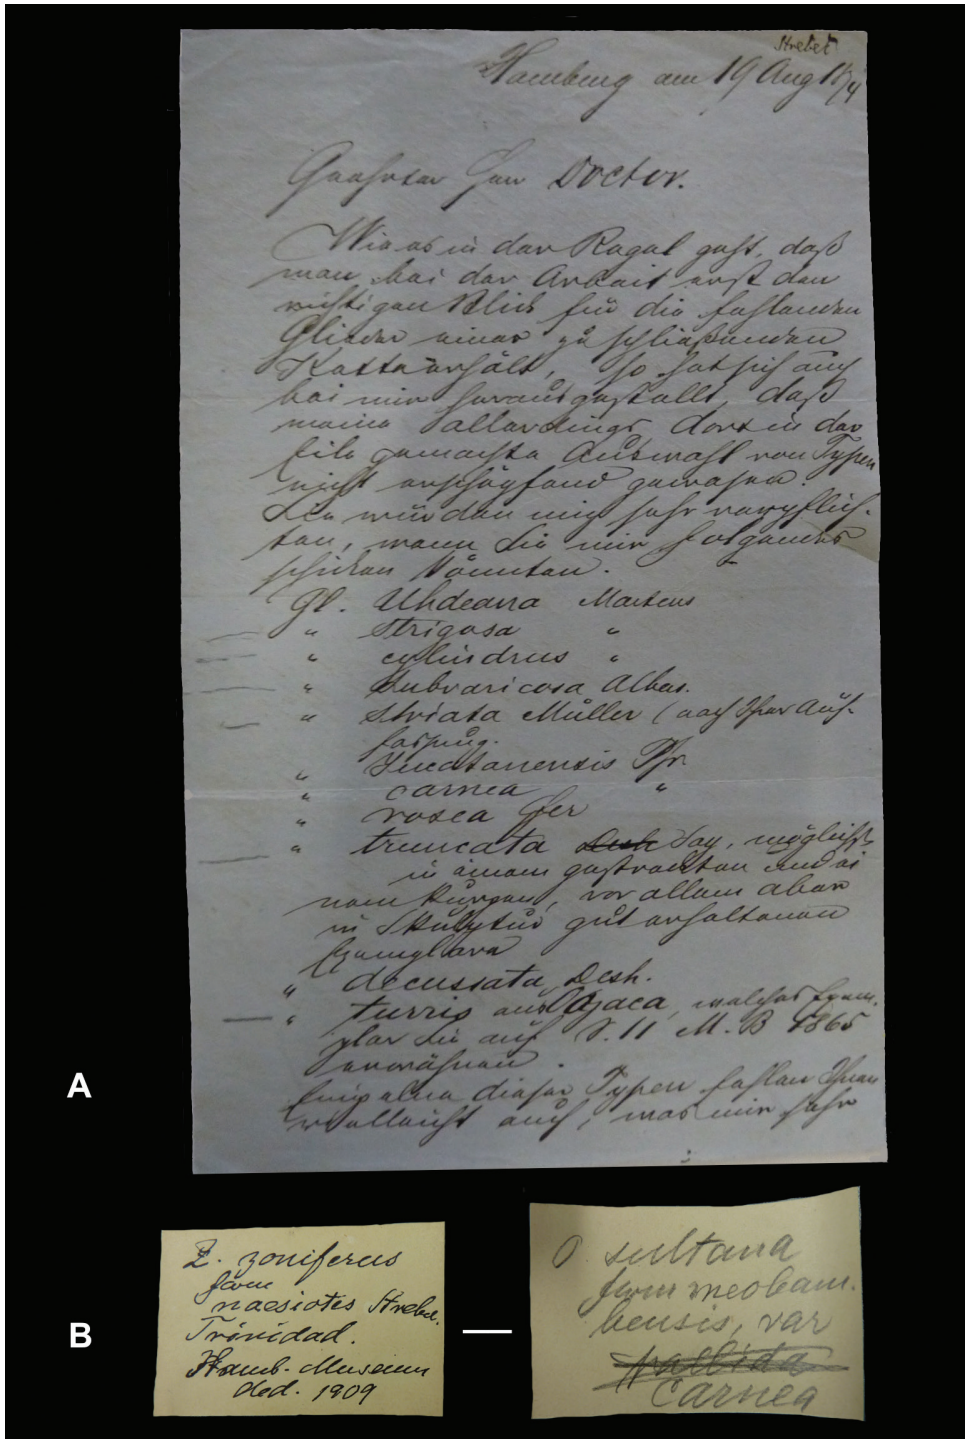 Strebel
Hamburg am 19 Aug 1874
Geehrter Herr Doctor.
Wie es in der Regel geht, daß
man bei der Arbeit erst den
richtigen Blick für die fehlenden
Glieder einer zu schließenden
Kette erhält, so hat sich auch
bei mir herausgestellt, daß
meine allerdings dort in der
Eile gemachte Auswahl von Typen
nicht erschöpfend gewesen.
Sie würden mich sehr verpflich-
ten, wenn Sie mir folgendes
schicken könnten.
Gl. Uhdeana Martens
" Strigosa "
" cylindrus "
" Subvaricosa Albers.
" Striata Müller (nach Ihrer Auf-
fassung.
" Yucatanensis Pfr
" carnea "
" rosea Fer
" truncata Desh Say, möglichst
in einem gestreckten und ei
nem kurzen, vor allem aber
in Skulptur gut erhaltenen
Exemplare
" decussata, Desh.
" turris aus Oajaca, welches Exem-
plar Sie auf S. 11 M. B 1865
erwähnen.
Einzelne dieser Typen fehlen Ihnen
vielleicht auch, was mir sehr
A
Z. zoniferus
form
naesiotes Strebel.
Trinidad.
Hamb. Museum
ded. 1909
B
O sultana
form meobam.
bensis, var
pallida
carnea